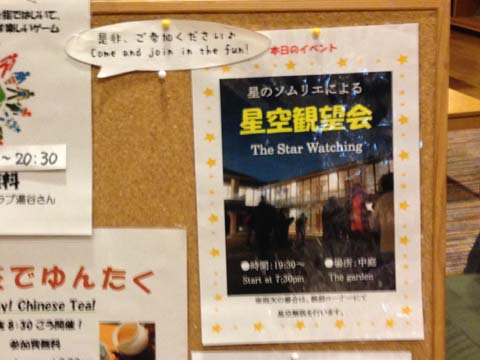 是非、ご参加ください♪
Come and join in the fun!
本日のイベント
星のソムリエによる
星空観望会
The Star Watching
●時間:19:30~
Start at 7:30pm
●場所:中庭
The garden
星空解説を行います。
~20:30
ラブ湯谷さん
でゆんたく
y! Chinese Tea!
8:30ごろ開催!
参加費無料